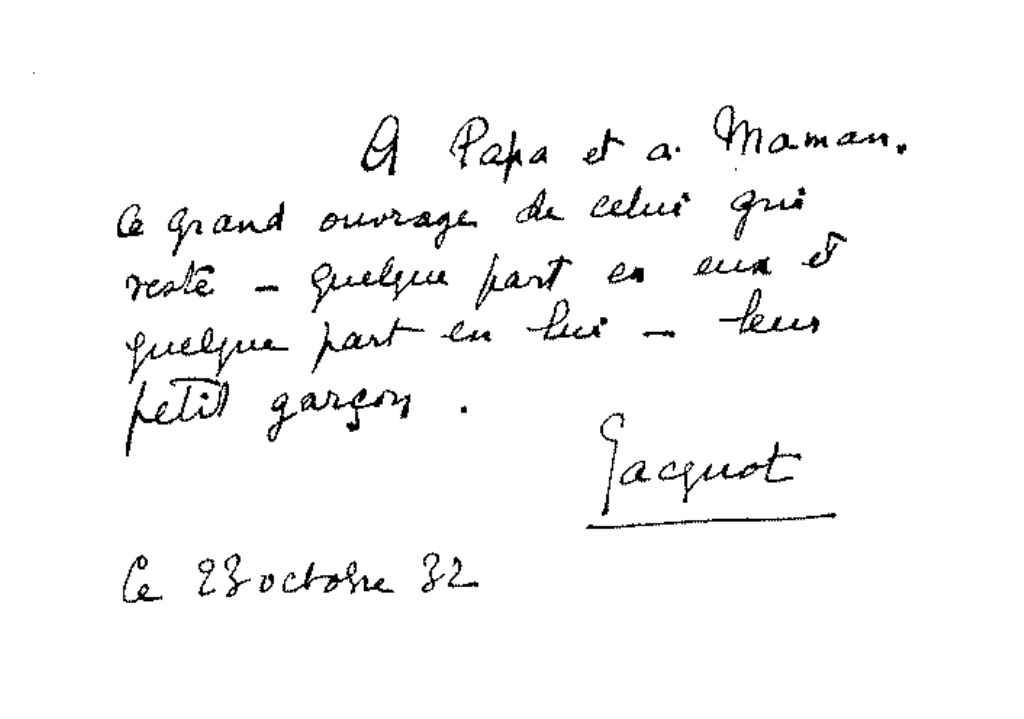 A Papa et a Maman.
Ce grand ouvrage de celui qui
reste – quelque part en eux et
quelque part en lui – leur
petit garçon.
Jacquot
Ce 23 octobre 32